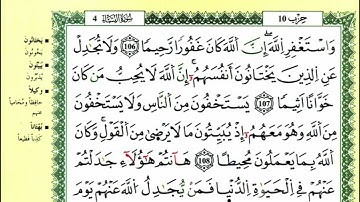 حزب 10
سُورَةُ النِّسَاءِ 4
وَاسْتَغْفِرِ اللَّهَ إِنَّ اللَّهَ كَانَ غَفُورًا رَحِيمًا 106 وَلَا تُجَادِلْ
عَنِ الَّذِينَ يَخْتَانُونَ أَنْفُسَهُمْ إِنَّ اللَّهَ لَا يُحِبُّ مَنْ كَانَ
خَوَّانًا أَثِيمًا 107 يَسْتَخْفُونَ مِنَ النَّاسِ وَلَا يَسْتَخْفُونَ
مِنَ اللَّهِ وَهُوَ مَعَهُمْ إِذْ يُبَيِّتُونَ مَا لَا يَرْضَىٰ مِنَ الْقَوْلِ وَكَانَ
اللَّهُ بِمَا يَعْمَلُونَ مُحِيطًا 108 هَا أَنْتُمْ هَٰؤُلَاءِ جَادَلْتُمْ
عَنْهُمْ فِي الْحَيَاةِ الدُّنْيَا فَمَنْ يُجَادِلُ اللَّهَ عَنْهُمْ يَوْمَ
يختانون
يخونون
يبيتون
يدبرون
وكيلا
حافظا ومحاميا
عنهم
بهتانا
كذبا فظيعا